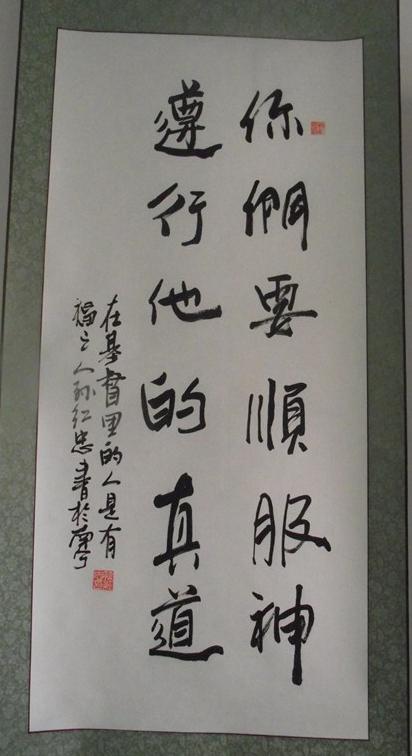 你們要順服神
遵行他的真道
在基督里的人是有
福之人孙红忠书於南宁